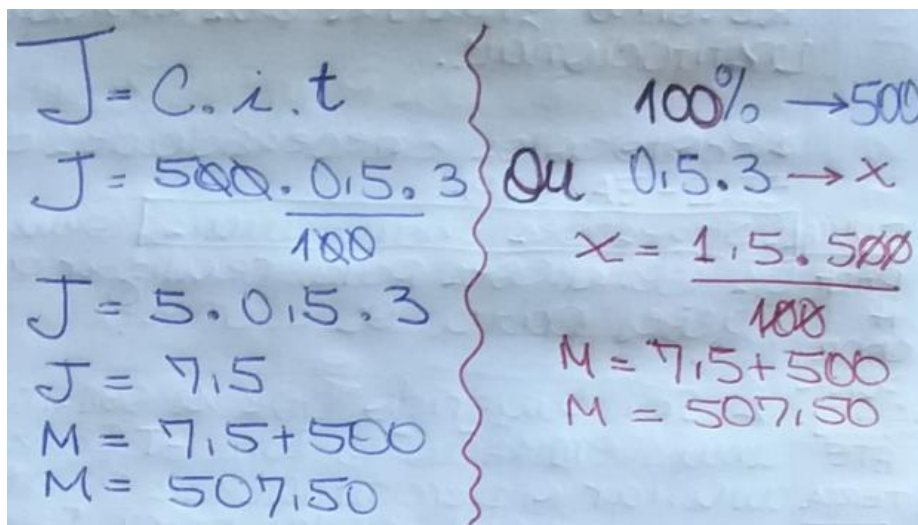 J = C.i.t
J = 500.0,5.3
100
J = 5.0,5.3
J = 7,5
M = 7,5+500
M = 507,50
100% → 500
Ou 0,5.3 → x
x = 1,5.500
100
M = 7,5+500
M = 507,50